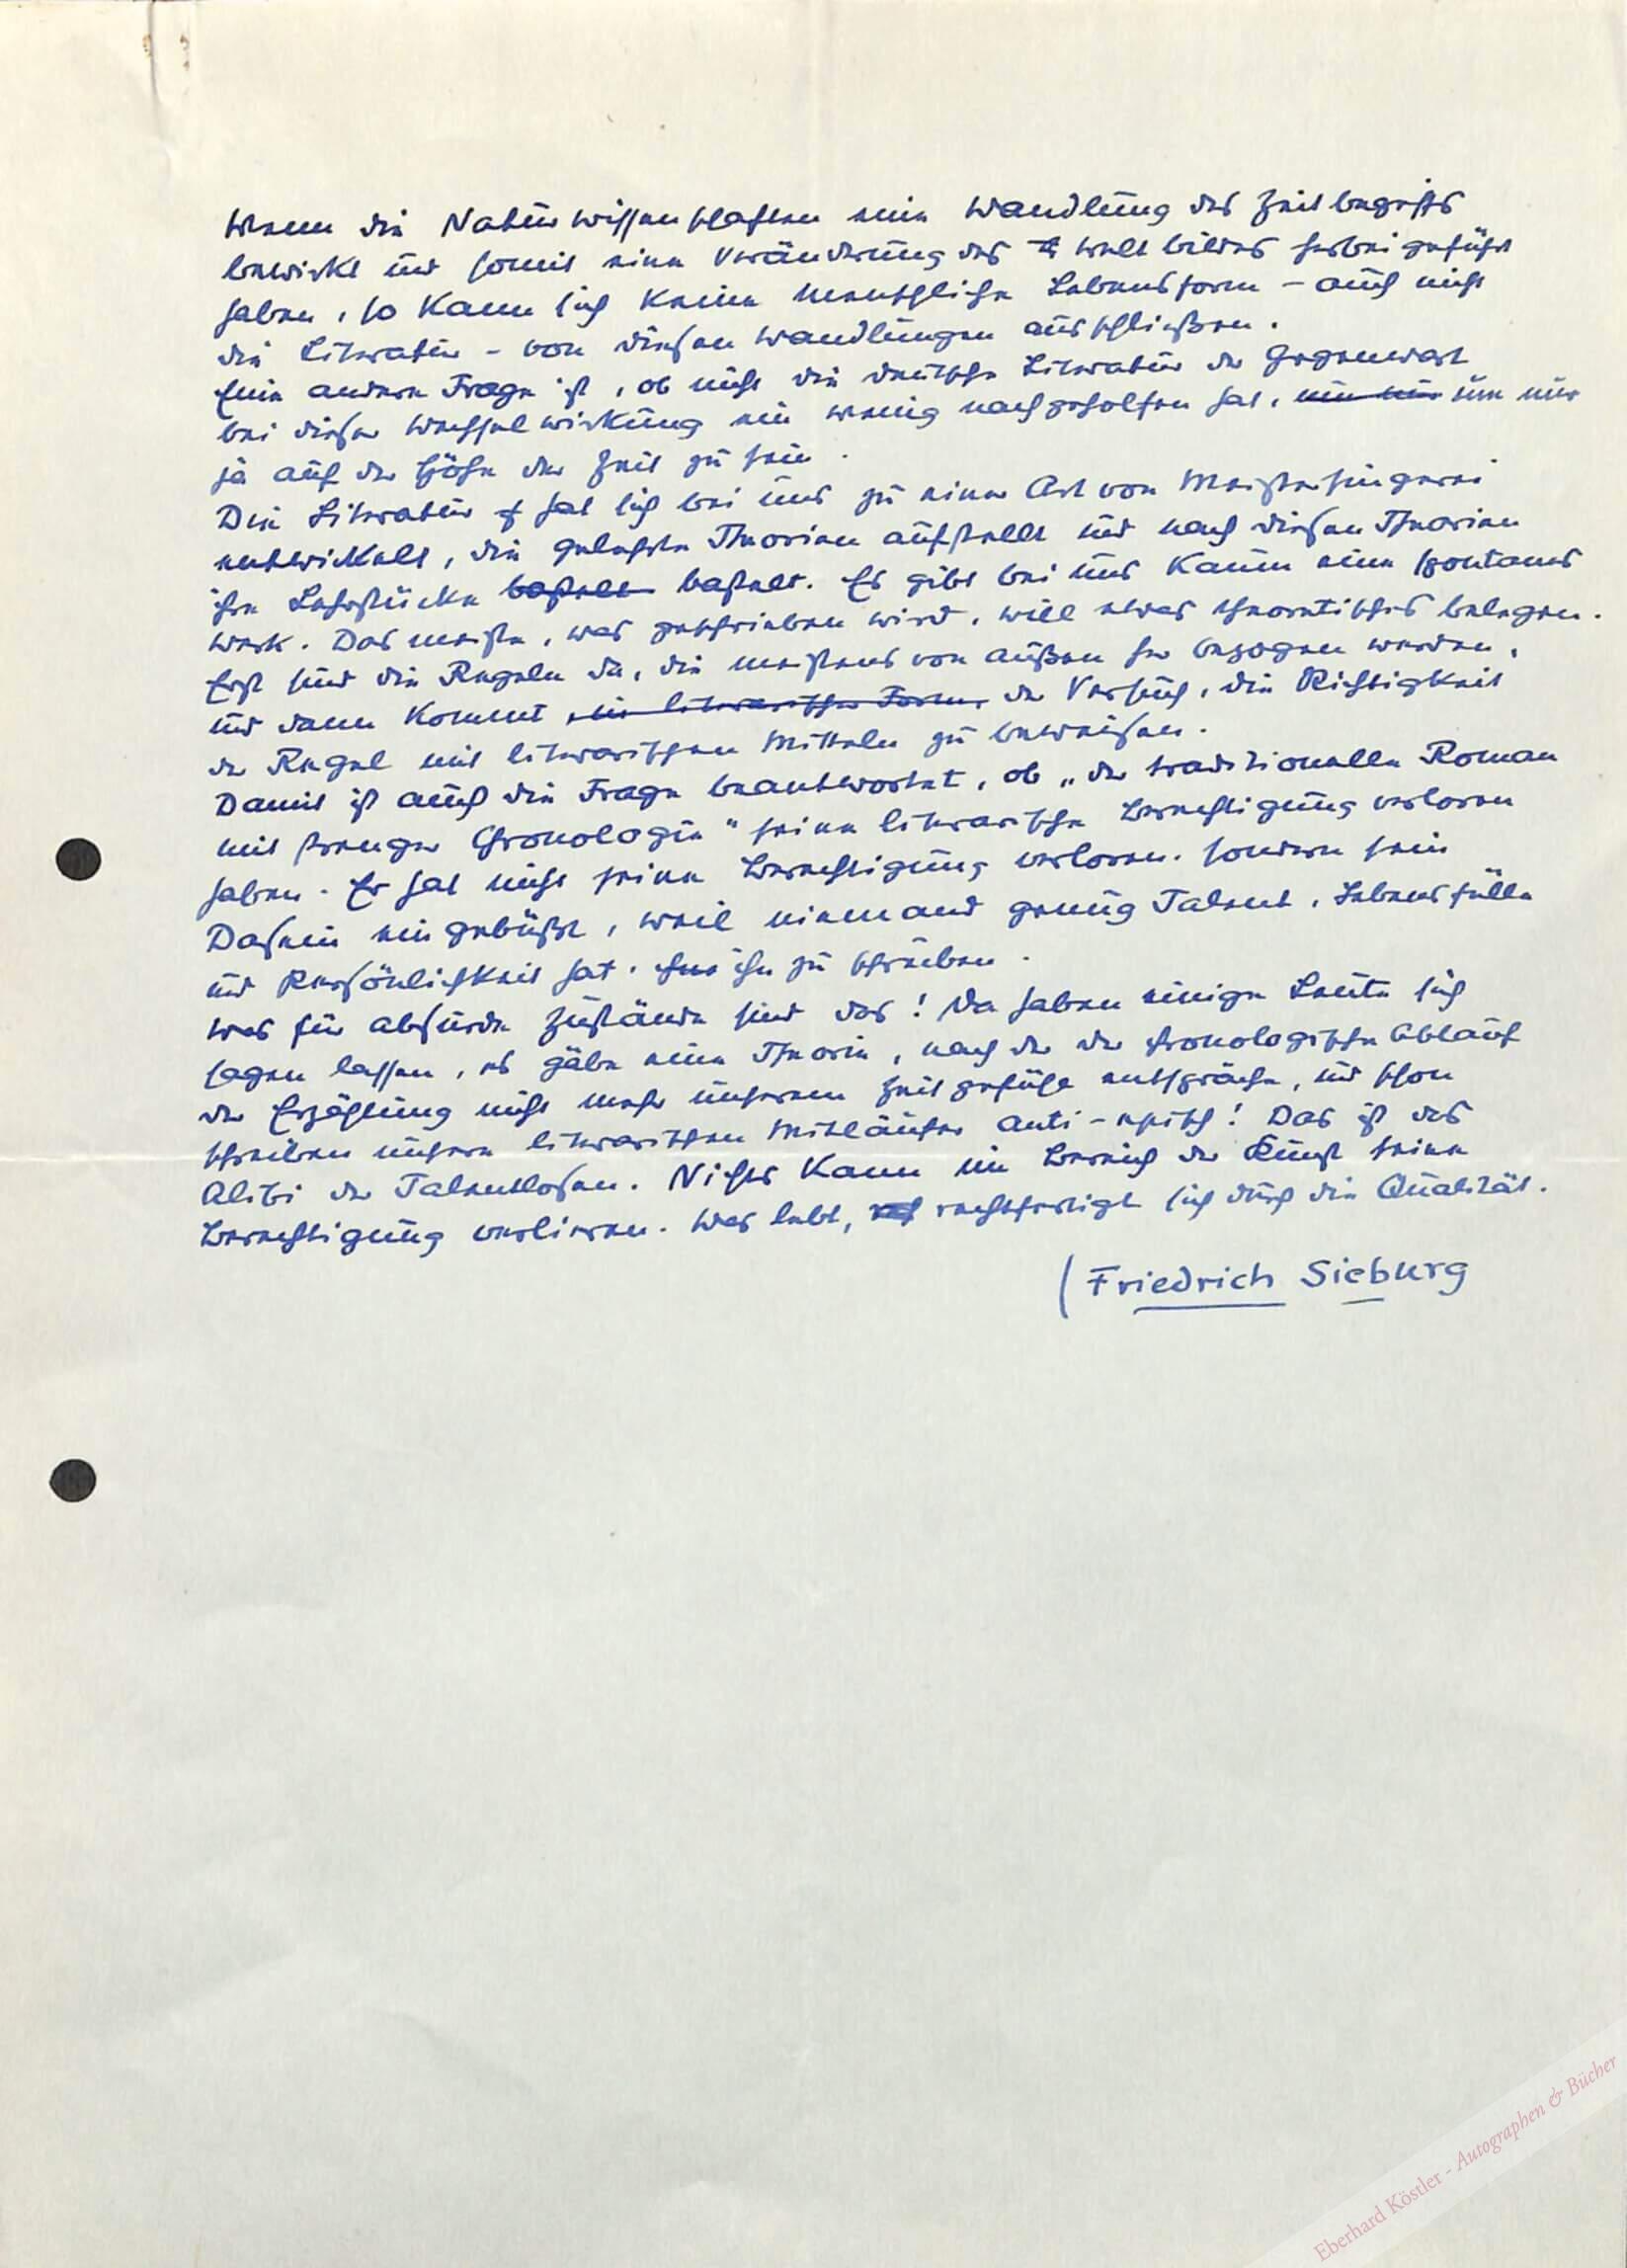 Wenn die Naturwissenschaften eine Wandlung des Zeitbegriffs
bewirkt und somit eine Veränderung des Weltbildes herbeigeführt
haben, so kann sich keine menschliche Lebensform – auch nicht
die Literatur – von diesen Wandlungen ausschließen.
Eine andere Frage ist, ob nicht die deutsche Literatur der Gegenwart
bei dieser Wechselwirkung ein wenig nachgeholfen hat, um nur
ja auf der Höhe der Zeit zu sein.
Die Literatur hat sich bei uns zu einer Art von Meistersingerei
entwickelt, die gelehrte Theorien aufstellt und nach diesen Theorien
ihre Lehrstücke bastelt. Es gibt bei uns kaum ein spontanes
Werk. Das meiste, was geschrieben wird, will etwas theoretisches belegen.
Erst sind die Regeln da, die meistens von außen her bezogen werden,
und dann kommt eine literarische Form, der Versuch, die Richtigkeit
der Regel mit literarischen Mitteln zu beweisen.
Damit ist auch die Frage beantwortet, ob „der traditionelle Roman
mit strenger Chronologie" seine literarische Berechtigung verloren
haben. Er hat nicht seine Berechtigung verloren, sondern sein
Dasein eingebüßt, weil niemand genug Talent, Lebensfülle
und Persönlichkeit hat, ihn zu schreiben.
Was für absurde Zustände sind das! Da haben einige Leute sich
sagen lassen, es gäbe eine Theorie, nach der der chronologische Ablauf
der Erzählung nicht mehr unserem Zeitgefühl entspräche, und schon
schreiben unsere literarischen Mitläufer anti-episch! Das ist das
Alibi der Talentlosen. Nichts kann im Bereich der Kunst seine
Berechtigung verlieren. Was lebt, rechtfertigt sich durch die Qualität.
(Friedrich Sieburg
Eberhard Köstler - Autographen & Bücher